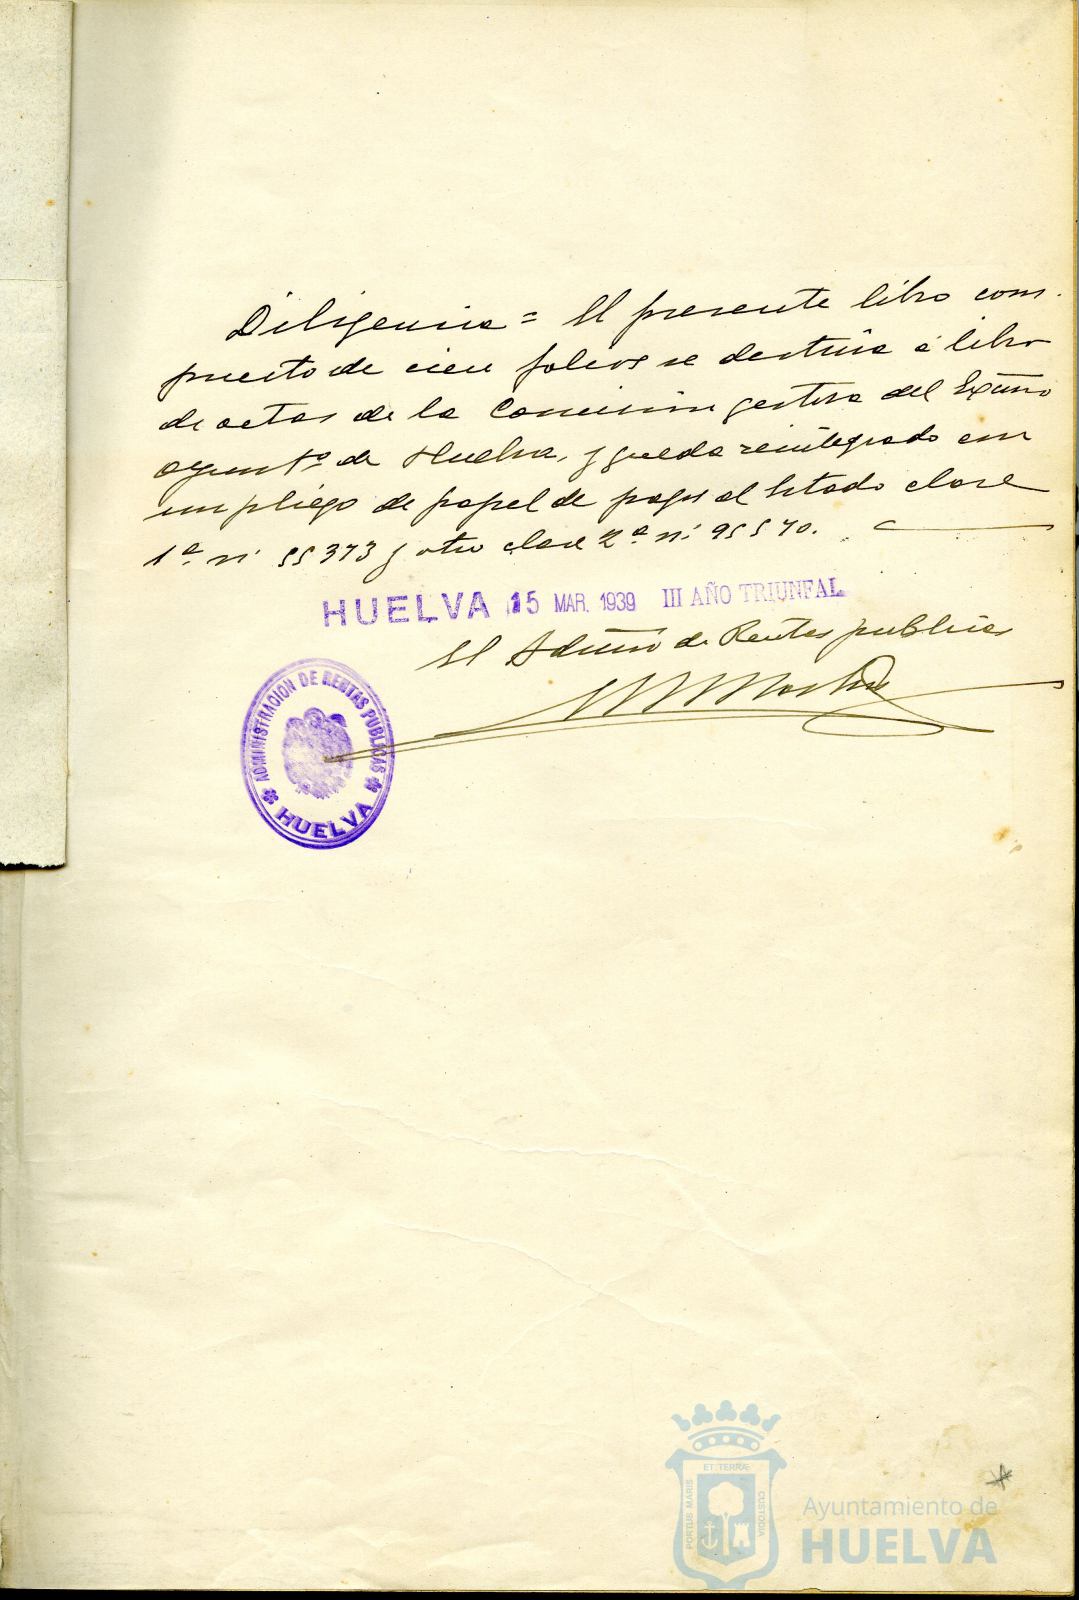 Diligencia = El presente libro com-
puesto de cien folios se destina á libro
de actas de la Comisión gestora del Excmo
Ayuntº de Huelva, y queda reintegrado con
un pliego de papel de pagos al Estado clase
1ª nº 55373 y otro clase 2ª nº 95570.
HUELVA 15 MAR. 1939 III AÑO TRIUNFAL
El Admor de Rentas publicas
ADMINISTRACION DE RENTAS PUBLICAS
HUELVA
PORTUS MARIS ET TERRÆ CUSTODIA
Ayuntamiento de
HUELVA